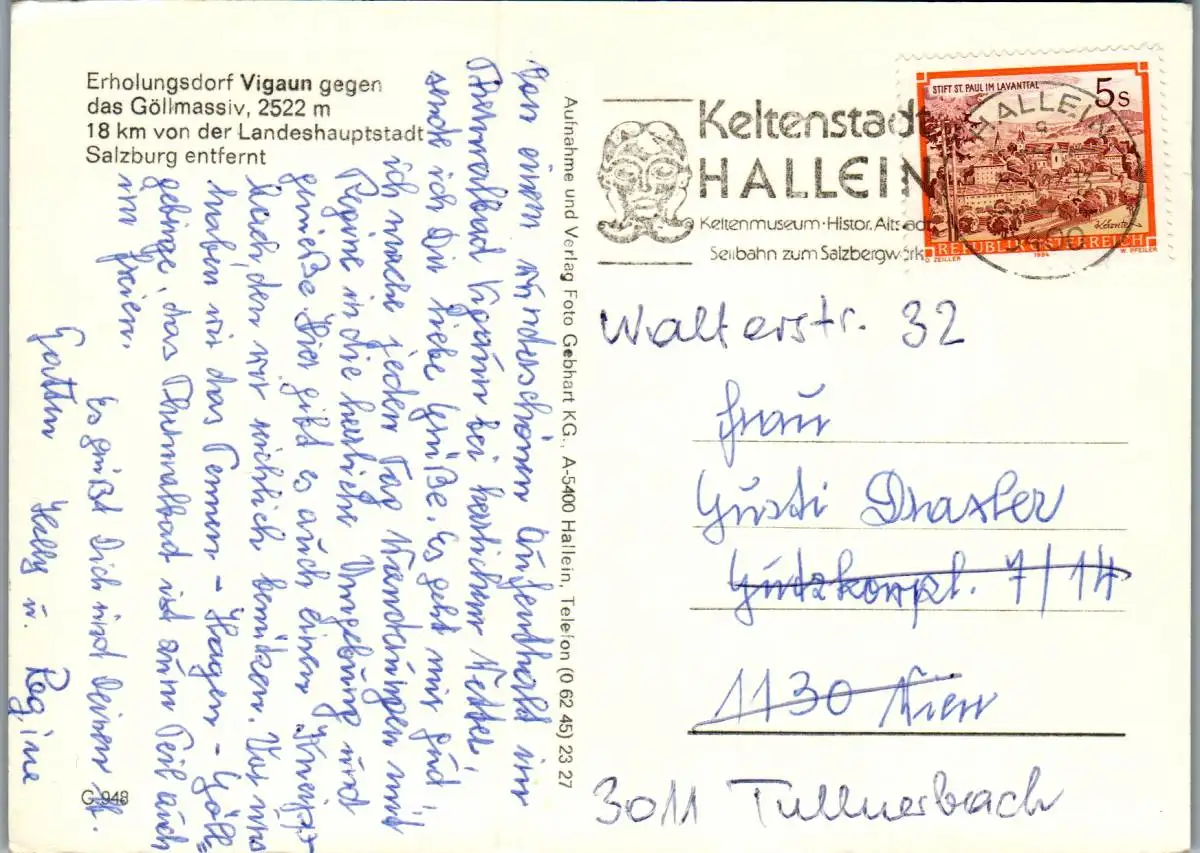 Erholungsdorf Vigaun gegen
das Göllmassiv, 2522 m
18 km von der Landeshauptstadt
Salzburg entfernt
Von einem wunderschönen Aufenthalt im
Thermalbad Vigaun bei herrlichem Wetter,
sende ich Dir liebe Grüße. Es geht mir gut,
ich mache jeden Tag Wanderungen mit
Regine in die herrliche Umgebung und
genieße. Hier gibt es auch einen Kneipp-
bach, den wir reichlich benützen. Vor uns
haben wir das Tennen-Hagen-Göll=
gebirge, das Thermalbad ist zum Teil auch
im freien.
Es grüßt Dich und Deinen lb.
Gatten Helly u. Regine
G 948
Aufnahme und Verlag Foto Gebhart KG., A-5400 Hallein, Telefon (0 62 45) 23 27
Keltenstadt
HALLEIN
Keltenmuseum · Histor. Altstadt
Seilbahn zum Salzbergwerk
STIFT ST. PAUL IM LAVANTTAL
5 S
REPUBLIK ÖSTERREICH
O. ZEILLER 1984 W. PFEILER
HALLEIN
5400
Walterstr. 32
Frau
Gusti Draxler
Gutzkowpl. 7/14
1130 Wien
3011 Tullnerbach